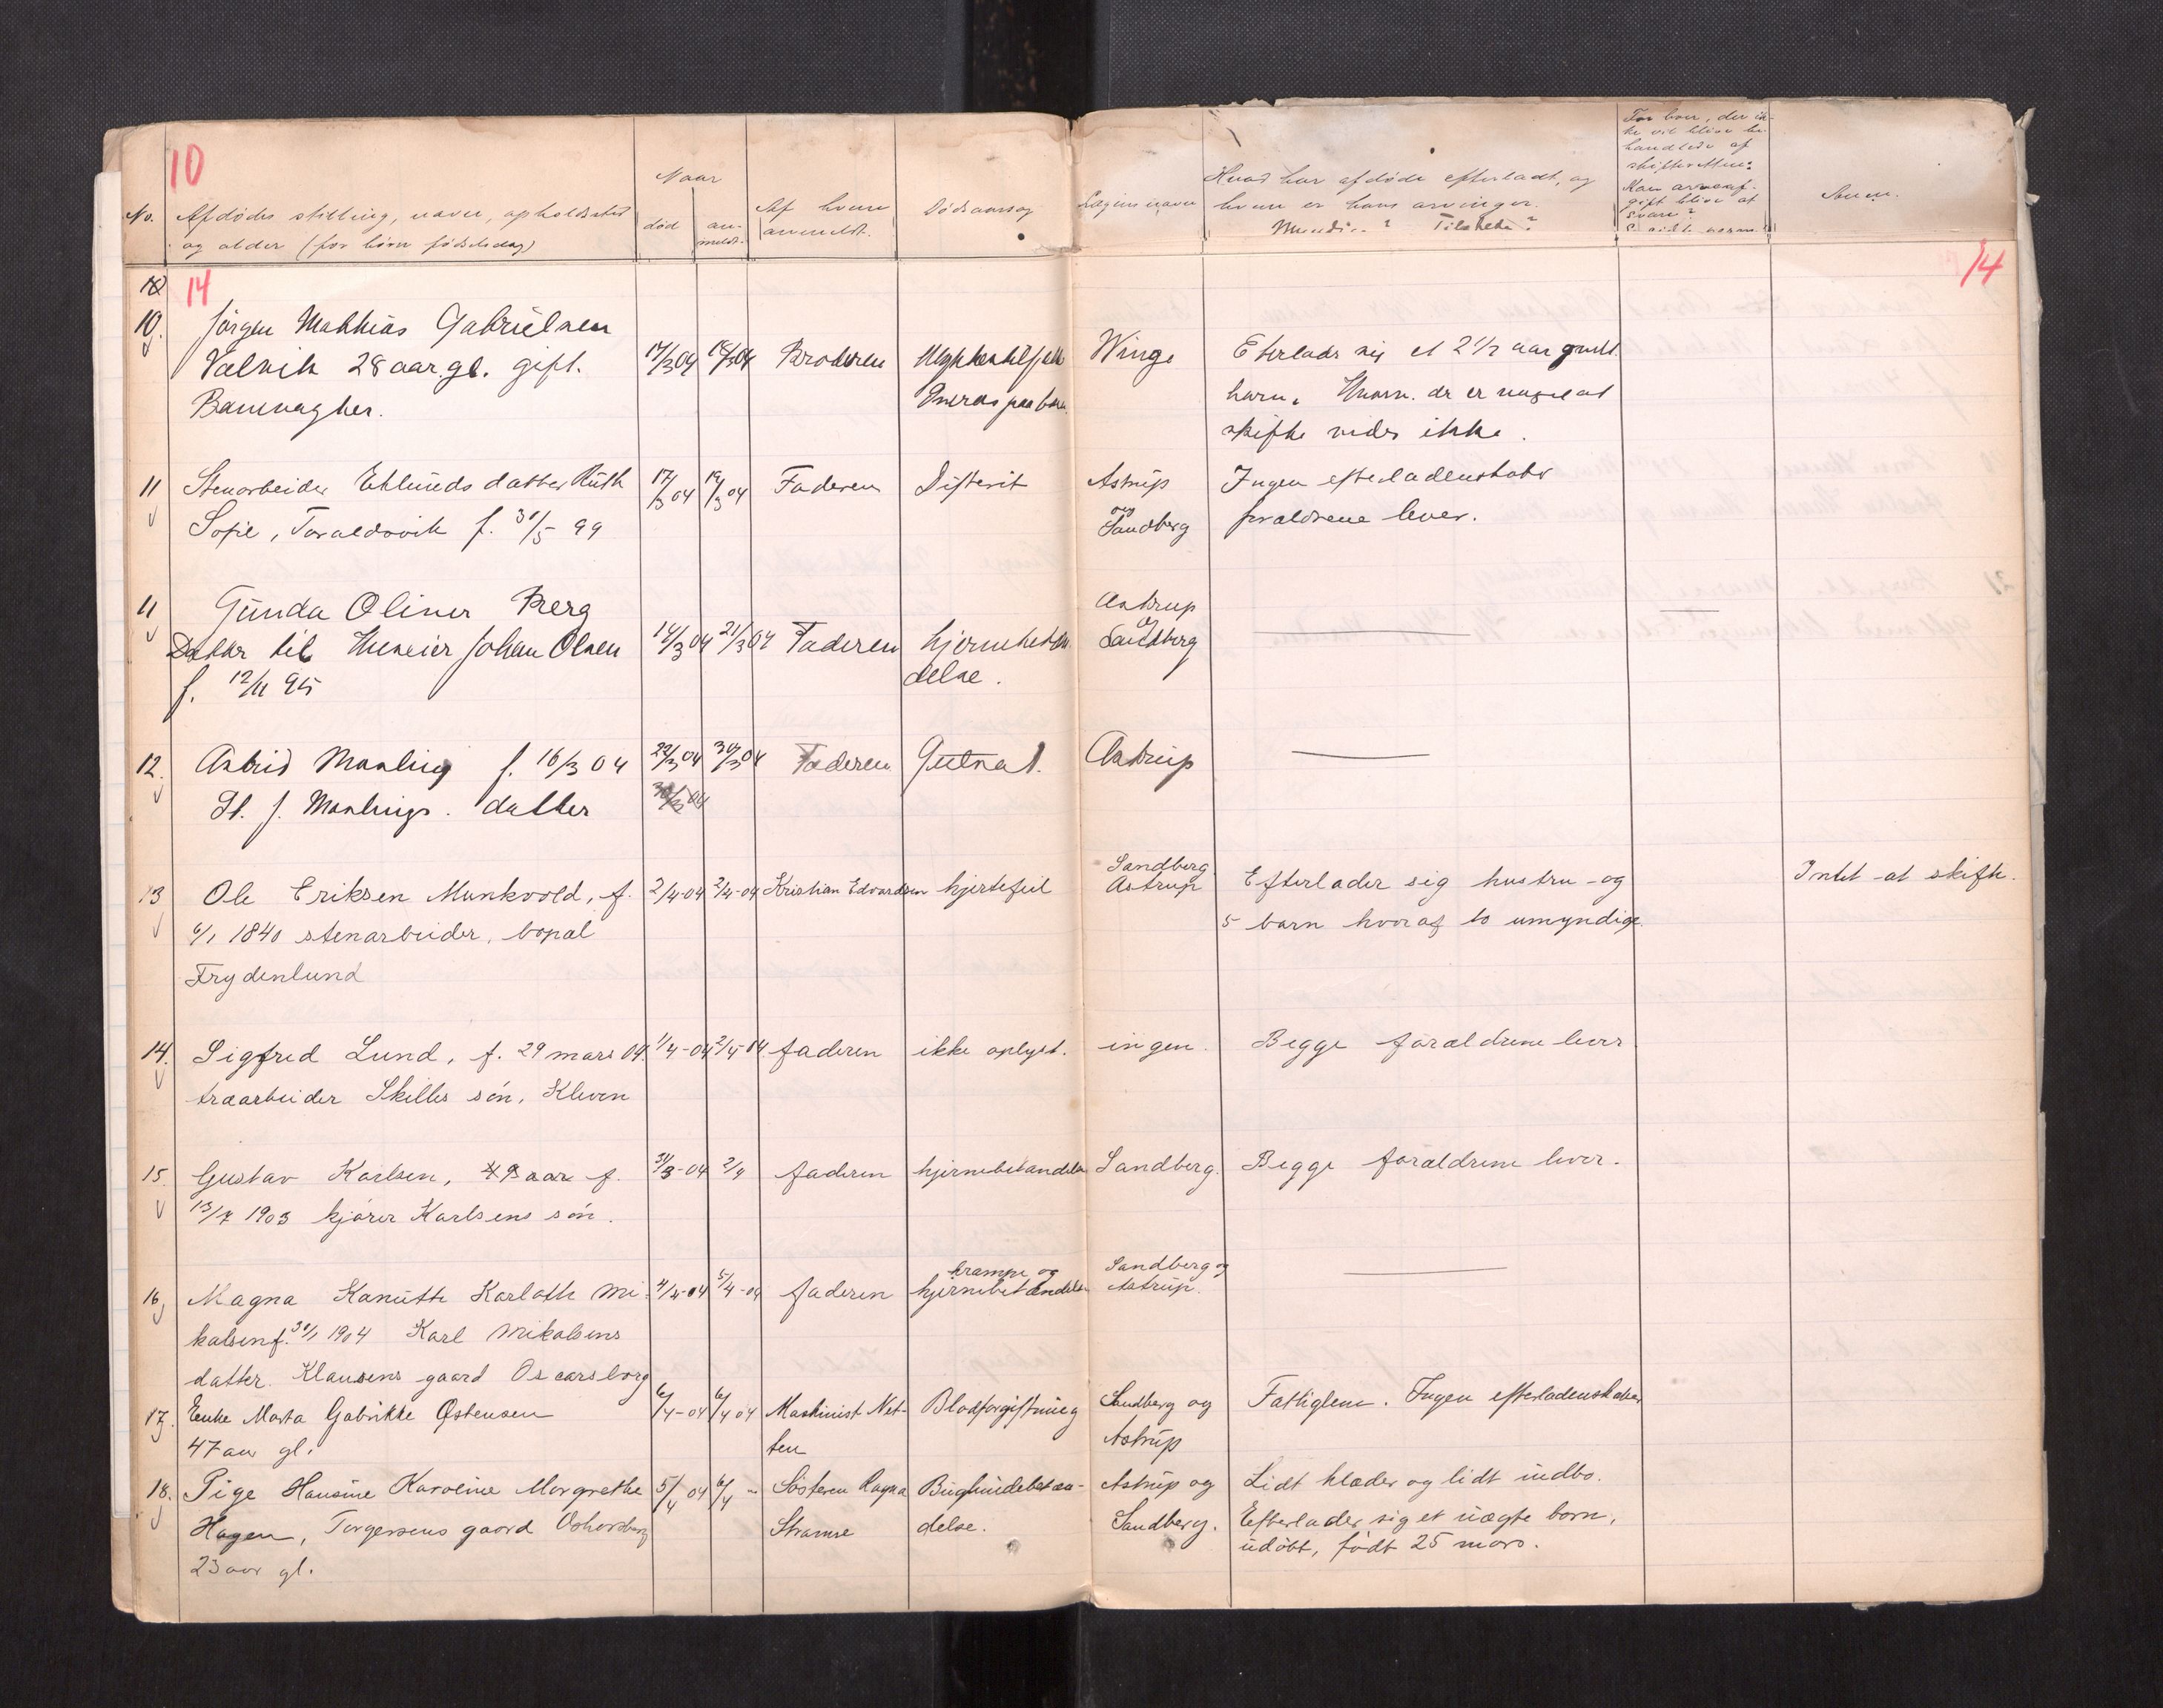 10
No. Afdødes stilling, navn, opholdssted
og alder (for børn fødselsdag)
Naar
død
an-
meldt.
Af hvem
anmeldt.
Dødsaarsag
Lægens navn
Hvad har afdøde efterladt, og
hvem er hans arvinger.
Myndige? Tilstede?
For boer, der ik-
ke vil blive be-
handlede af
skifteretten:
Kan arveaf-
gift blive at
svare?
Anm.
14
14
10. Jörgen Mathias Gabrielsen
Valvik 28 aar gl. gift.
17/3 04 18/3 04 Broderen
Winge
Efterlader sig et 2 1/2 aar gammelt
barn. Hvorv. der er noget at
skifte vides ikke.
11 Stenarbeider Eklunds datter Ruth
Sofie, Toraldsvik f. 30/5 99
17/3 04 19/3 04 Faderen Difterit Astrup
og
Sandberg
Ingen efterladenskaber
forældrene lever.
11 Gunda Oliner Berg
Datter til Huseier Johan Olsen
f. 12/11 95
19/3 04 21/3 04 Faderen hjernebetæn
delse.
Astrup
og
Sandberg
12. Astrid Manling f. 16/3 04
St. J. Manlings. datter
22/3 04 30/3 04 Faderen Gulsot. Astrup
13 Ole Eriksen Munkvold, f.
6/1 1840 stenarbeider, bopæl
Frydenlund
2/4-04 2/4-04 Kristian Edvardsen hjertefeil
Sandberg
Astrup
Efterlader sig hustru og
5 barn hvoraf to umyndige.
Intet at skifte.
14. Sigfred Lund, f. 29 mars 04.
træarbeider Skilles søn, Kleven
1/4-04 2/4-04 faderen ikke oplyst. ingen. Begge forældrene lever
15. Gustav Karlsen, aar f.
13/7 1903 kjører Karlsens søn.
31/3-04 2/4 faderen hjernebetændelse Sandberg. Begge forældrene lever.
16 Magna Kanutte Karloth Mi-
kalsen f. 30/1 1904 Karl Mikalsens
datter. Klausens gaard Oscarsborg
4/4-04 5/4-04 faderen
krampe og
hjernebetændelse
Sandberg og
Astrup.
17. Enke Marta Gabrikke Østensen
47 aar gl.
6/4-04 6/4 04 Maskinist Net-
ten
Blodforgiftning
Sandberg og
Astrup
Fattiglem. Ingen efterladenskaber
18. Pige Hansine Karoline Margrethe
Hagen, Torgersens gaard Oskarsborg
23 aar gl.
5/4 04 6/4 - Søsteren Ragna
Stramse
Bughindebetæn-
delse.
Astrup og
Sandberg.
Lidt klæder og lidt indbo.
Efterlader sig et uægte born,
udöbt, født 25 mars.